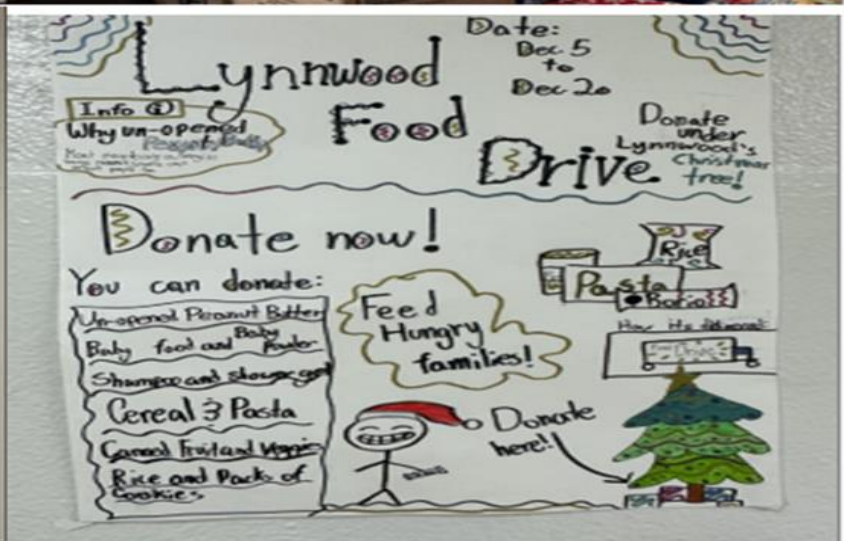 Lynnwood
Food
Drive
Date:
Dec 5
to
Dec 20
Info i
Why un-opened
Peanut Butter
Donate
under
Lynnwood's
Christmas
tree!
Donate now!
You can donate:
Un-opened Peanut Butter
Baby food and Baby Powder
Shampoo and shower gel
Cereal & Pasta
Canned Fruit and Veggie
Rice and Packs of
Cookies
Feed
Hungry
families!
Rice
Pasta
How its delivered:
Donate
here!